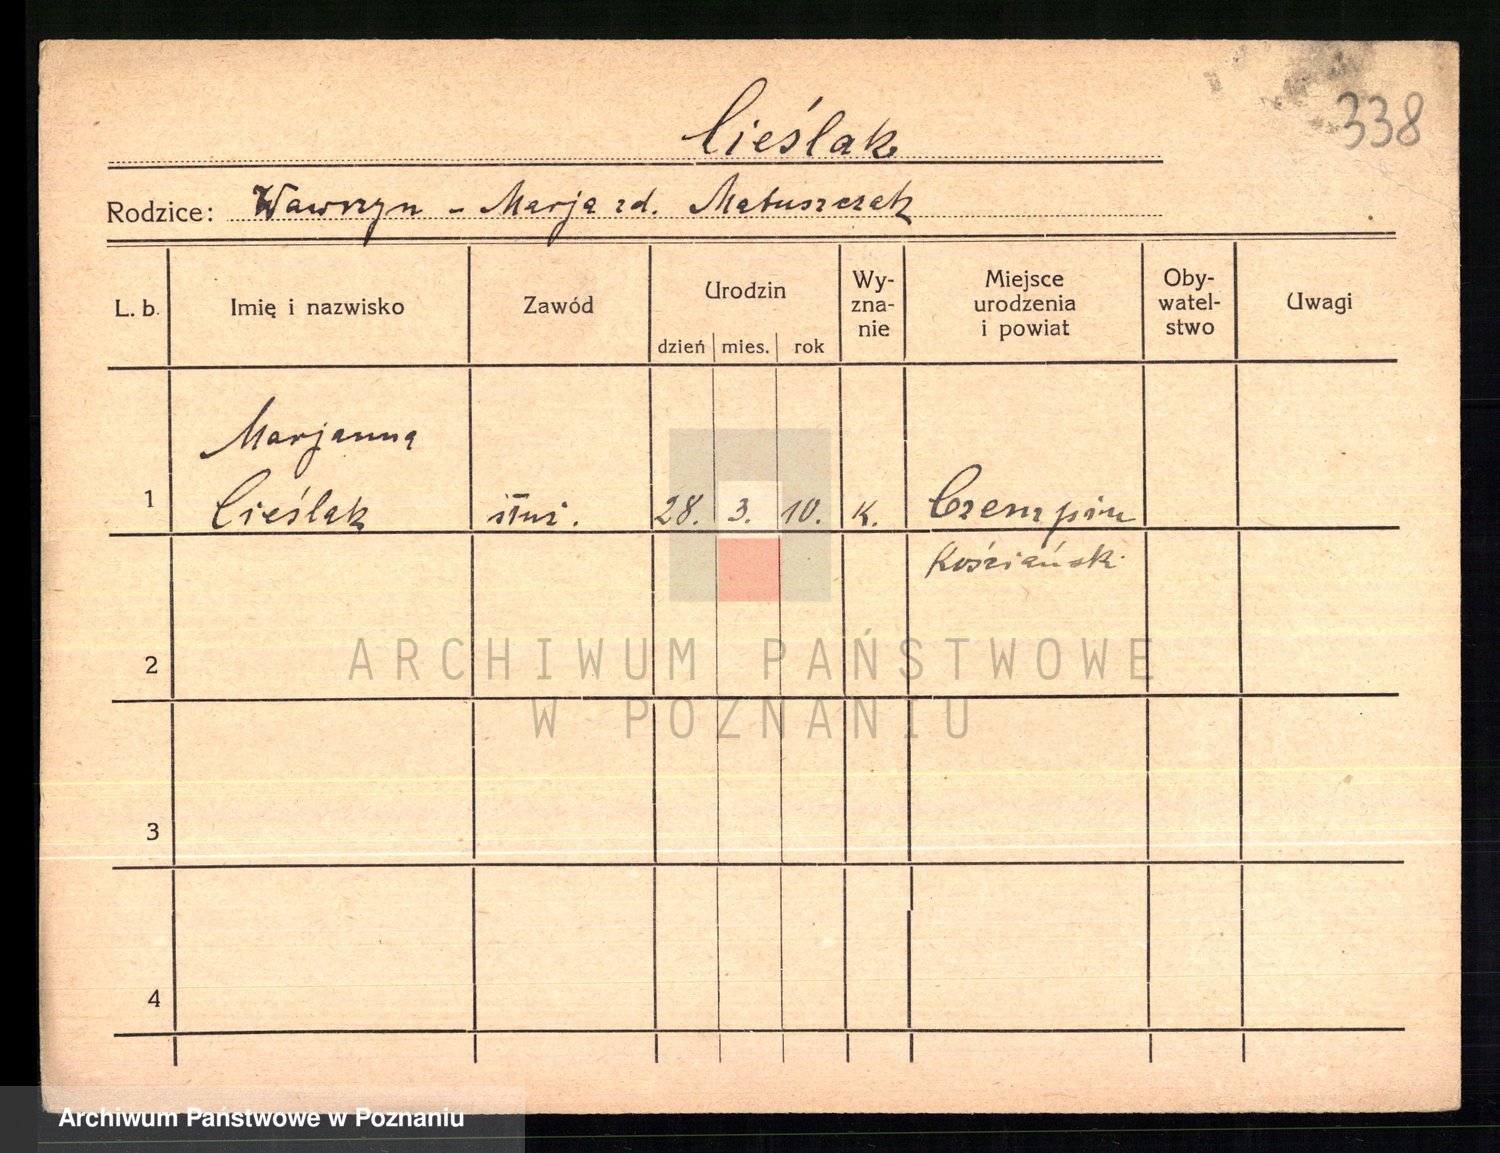 338
Cieślak
Rodzice: Wawrzyn - Marja zd. Matuszczak
L. b. Imię i nazwisko Zawód Urodzin dzień mies. rok Wy-zna-nie Miejsce urodzenia i powiat Oby-watel-stwo Uwagi
Marjanna
1 Cieślak 28. 3. 10. K. Czempin
Kościański
2
ARCHIWUM PAŃSTWOWE
W POZNANIU
3
4
Archiwum Państwowe w Poznaniu